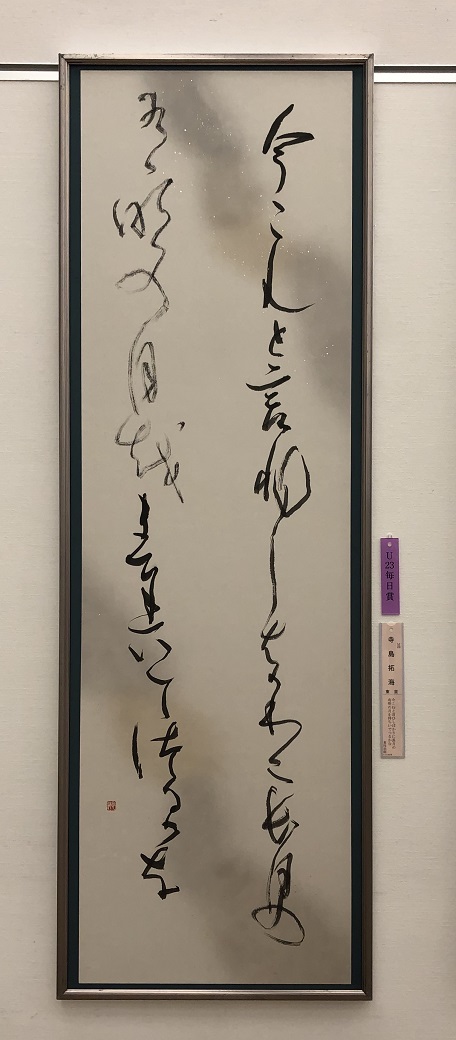 今こむと言ひしはかりに長月の
有明の月越まちいてつるかな
U23毎日賞
寺島拓海